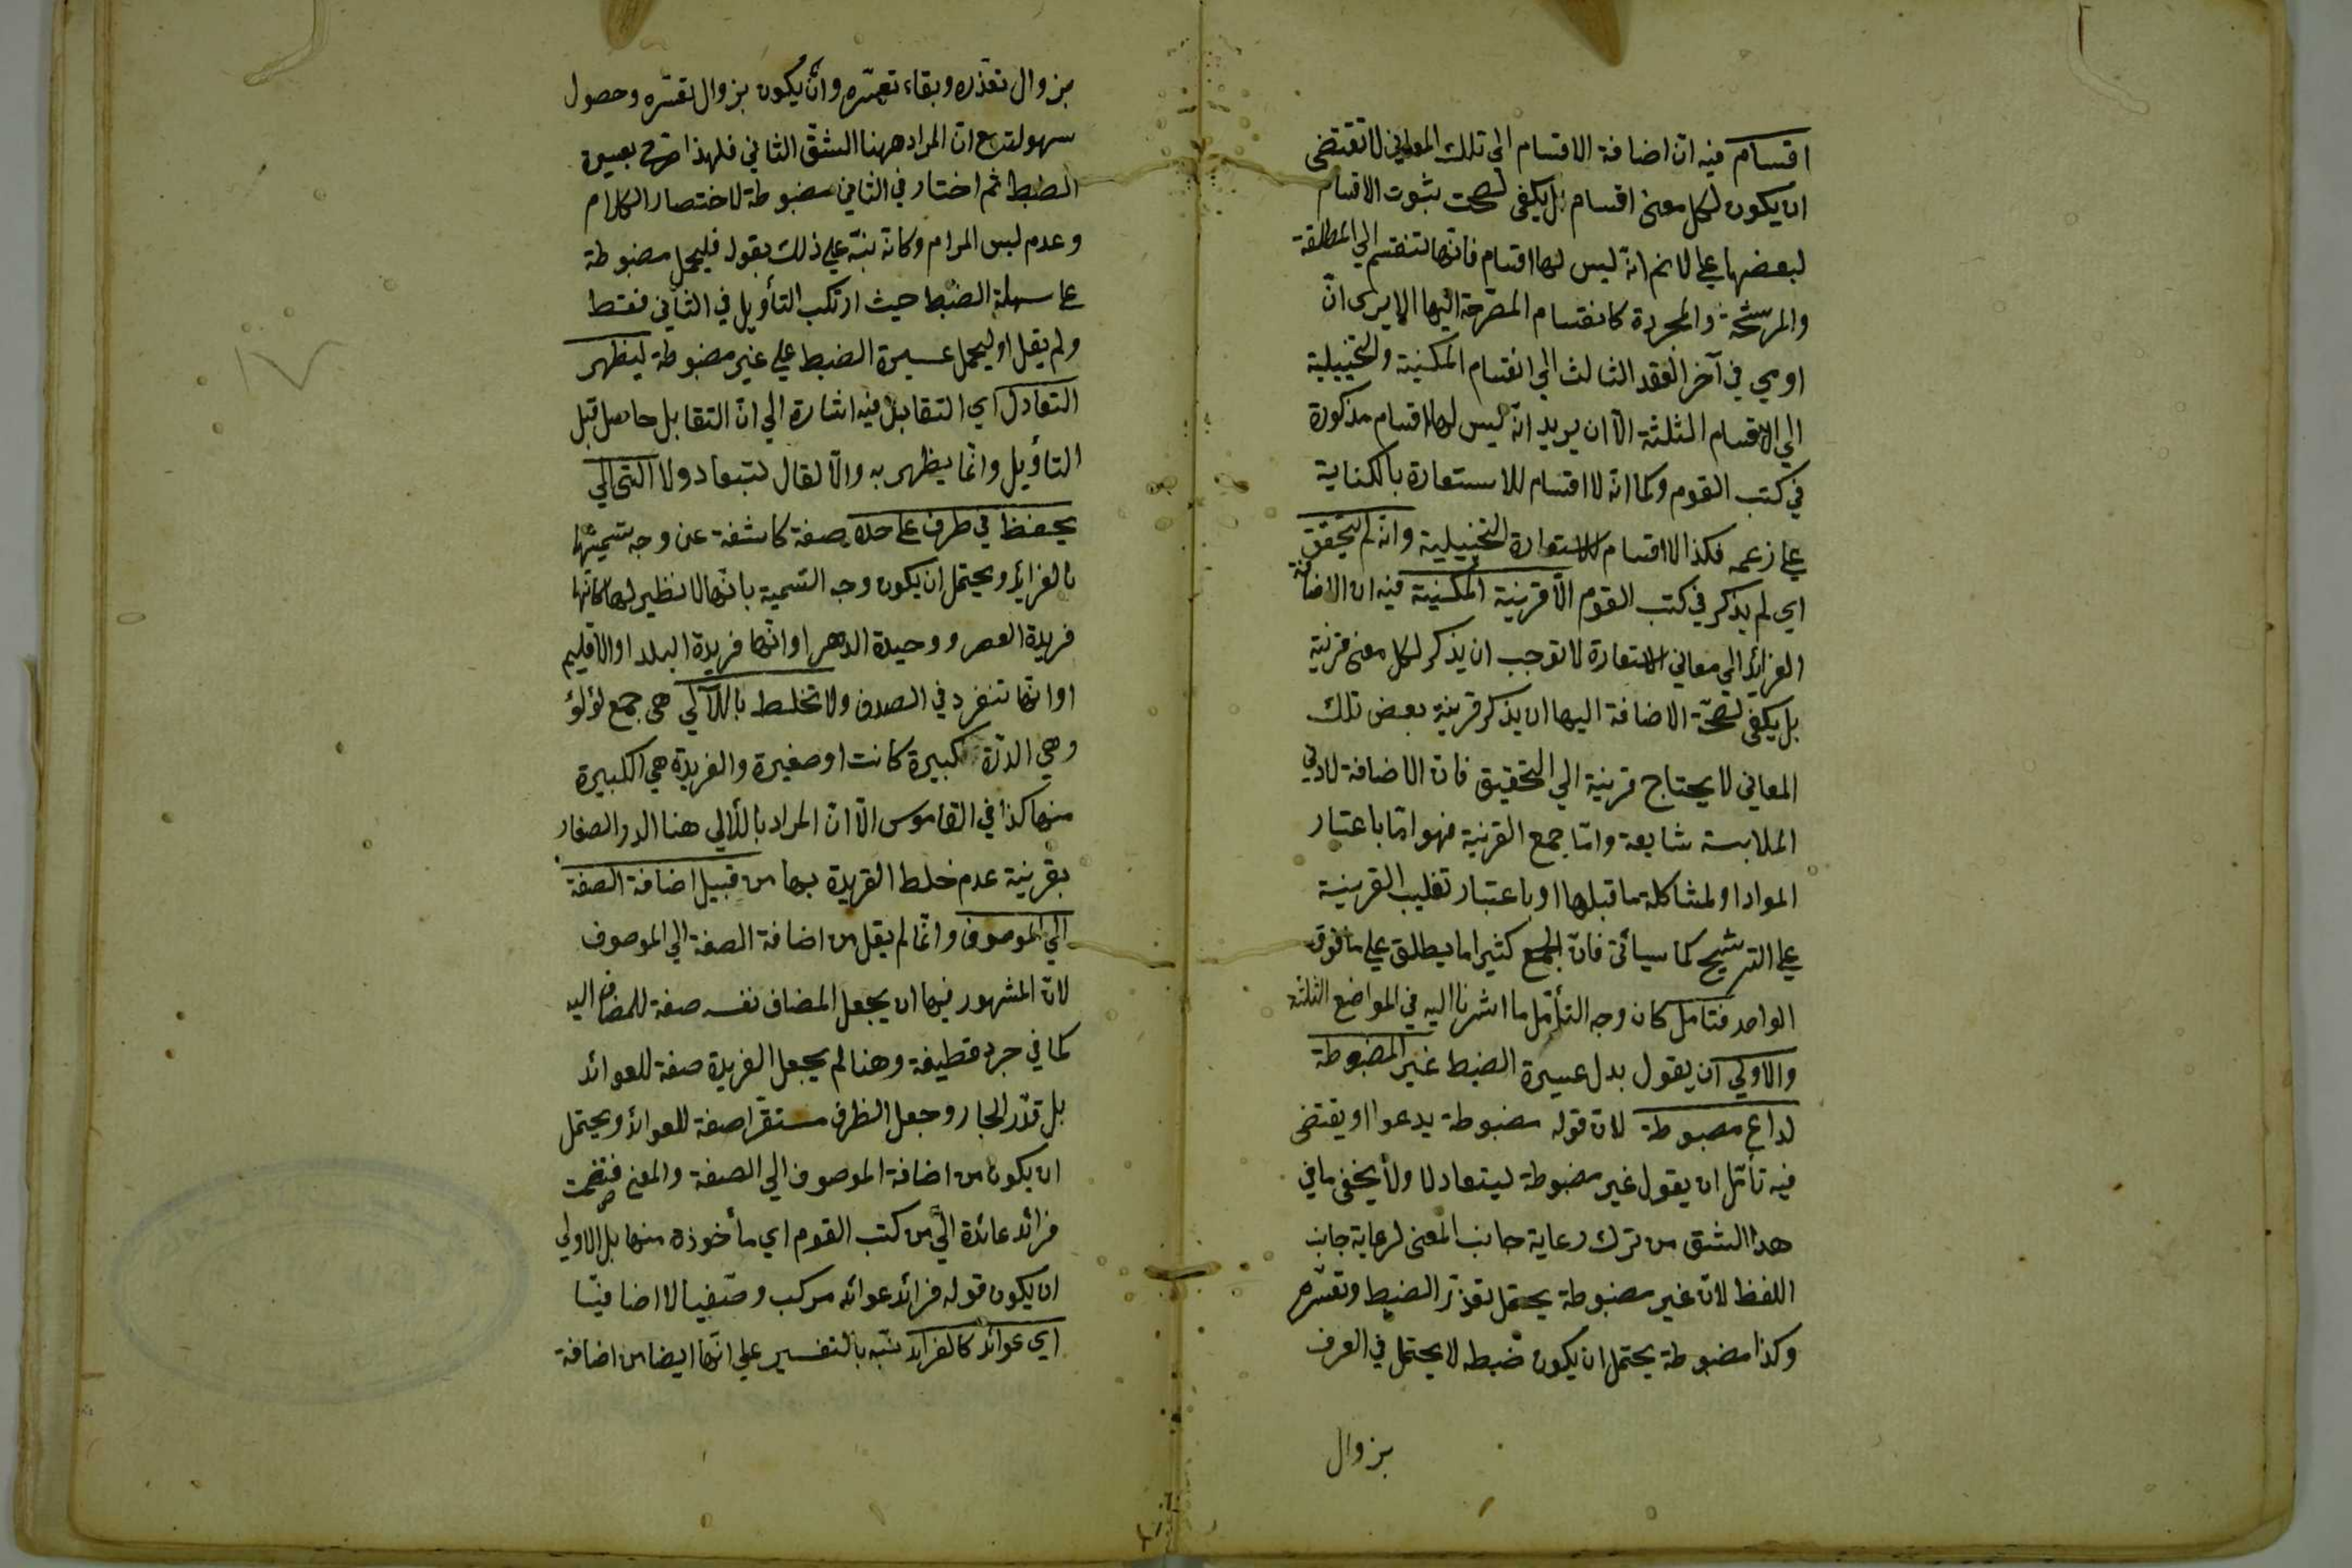 اقسام فيه ان اضافة الاقسام الى تلك المعاني لا تقتضى
ان يكون لكل معنى اقسام بل يكفى لصحت بثبوت الاقسام
لبعضها على لانم انه ليس لها اقسام فانها تنقسم الي المطلقة
والمرشحة والمجردة كانقسام المصرحة اليها الا يرى انّ
اومي في آخر الفقد الثالث الي انقسام المكنية والتخييلية
الي الاقسام الثلثة الّا ان يريد انه ليس لها اقسام مذكورة
في كتب القوم وكما انه لا اقسام للاستعارة بالكناية
علي زعمه فكذا لا اقسام للاستعارة التخييلية وانه لم يتحقق
اي لم يذكر في كتب القوم الّا قرينة المكنية فيه ان الاضافة
القرائن الي معاني الاستعارة لا توجب ان يذكر لكل معنى قرينة
بل يكفى لصحّة الاضافة اليها ان يذكر قرينة بعض تلك
المعاني لا يحتاج قرينة الي التحقيق فان الاضافة لادني
الملابسة شايعة وامّا جمع القرينة فهو امّا باعتبار
المواد او لمشاكلة ما قبلها او باعتبار تغليب القرينة
علي الترشيح كما سيأتى فانّ الجمع كثيرا ما يطلق علي ما فوق
الواحد فتامل كان وجه التأمّل ما اشرنا اليه في المواضع الثلثة
والاولي ان يقول بدل عسيرة الضبط غير المضبوطة
لداع مضبوطة لان قوله مضبوطة يدعوا او يقتضى
فيه تأمّل ان يقول غير مضبوطة ليتعادلا ولا يخفى ما في
هذا الشق من ترك رعاية جانب المعنى لرعاية جانب
اللفظ لانّ غير مضبوطة يحتمل تعذّر الضبط وتعسّره
وكذا مضبوطة يحتمل ان يكون ضبطه لا يحتمل في العرف
بزوال
بزوال تعذّره وبقاء تعسّره وان يكون بزوال تعسّره وحصول
سهولته مع ان المراد ههنا الشقّ الثاني فلهذا صرّح بعسيرة
الضبط ثم اختار في الثاني مضبوطة لاختصار الكلام
وعدم لبس المرام وكانه نبّه علي ذلك بقوله فليحمل مضبوطة
على سهلة الضبط حيث ارتكب التأويل في الثاني فقط
ولم يقل او ليحمل عسيرة الضبط علي غير مضبوطة ليظهر
التعادل اي التقابل فيه اشارة الي انّ التقابل حاصل قبل
التأويل وانّما يظهر به والّا لقال ليتعادولا التى الي
يحفظ في ظرف على حدة صفة كاشفة عن وجه تسميتها
بالفرايد ويحتمل ان يكون وجه التسمية بانّها لا نظير لها كانّها
فريدة العصر ووحيدة الدهر او انّها فريدة البلد او الاقليم
او انّها تنفرد في الصدف ولا تخلط باللآلي هى جمع لؤلؤ
وهي الدرّة كبيرة كانت او صغيرة والفريدة هي الكبيرة
منها كذا في القاموس الّا انّ المراد باللألي هنا الدر الصغار
بقرينة عدم خلط الفريدة بها من قبيل اضافة الصفة
الي الموصوف وانّما لم يقل من اضافة الصفة الي الموصوف
لانّ المشهور فيها ان يجعل المضاف نفسه صفة للمضاف اليه
كما في جرد قطيفة وهنا لم يجعل الفريدة صفة للعوائد
بل قدّر الجار وجعل الظرف مستقرّا صفة للعوائد ويحتمل
ان يكون من اضافة الموصوف الي الصفة والمعنى فنظمت
فرائد عائدة اليّ من كتب القوم اي مأخوذة منها بل الاولي
ان يكون قوله فرائد عوائد مركب وصّفيا لا اضافيّا
اي عوائد كالفرائد نبّه بالتفسير علي انّها ايضا من اضافة